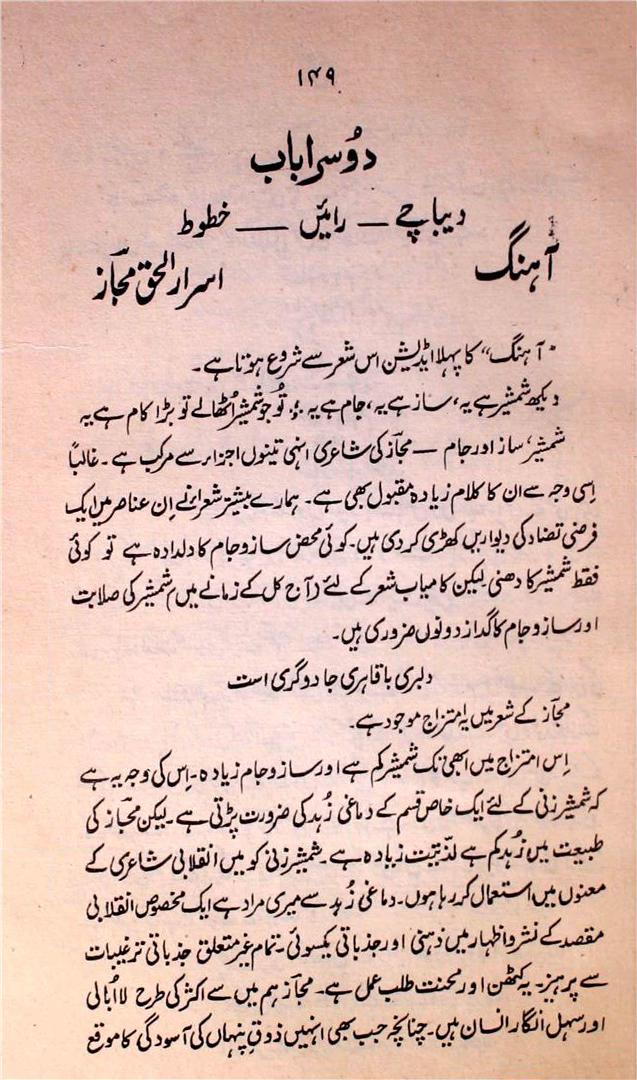 ۱۴۹
دوسرا باب
دیباچے — رائیں — خطوط
آہنگ
اسرار الحق مجازؔ
"آہنگ" کا پہلا ایڈیشن اس شعر سے شروع ہوتا ہے۔
دیکھ شمشیر ہے یہ، ساز ہے یہ، جام ہے یہ ؞ تُو جو شمشیر اُٹھالے تو بڑا کام ہے یہ
شمشیر، ساز اور جام — مجازؔ کی شاعری انہی تینوں اجزاء سے مرکب ہے۔ غالباً
اِسی وجہ سے ان کا کلام زیادہ مقبول بھی ہے۔ ہمارے بیشتر شعراء نے اِن عناصر میں ایک
فرضی تضاد کی دیواریں کھڑی کر دی ہیں۔ کوئی محض ساز و جام کا دلدادہ ہے تو کوئی
فقط شمشیر کا دھنی لیکن کامیاب شعر کے لئے (آج کل کے زمانے میں) شمشیر کی صلابت
اور ساز و جام کا گداز دونوں ضروری ہیں۔
دلبری با قاہری جادوگری است
مجازؔ کے شعر میں یہ امتزاج موجود ہے۔
اِس امتزاج میں ابھی تک شمشیر کم ہے اور ساز و جام زیادہ۔ اِس کی وجہ یہ ہے
کہ شمشیر زنی کے لئے ایک خاص قسم کے دماغی زُہد کی ضرورت پڑتی ہے۔ لیکن مجازؔ کی
طبیعت میں زُہد کم ہے لذّتیت زیادہ ہے۔ شمشیر زنی کو میں انقلابی شاعری کے
معنوں میں استعمال کر رہا ہوں۔ دماغی زُہد سے میری مراد ہے ایک مخصوص انقلابی
مقصد کے نشر و اظہار میں ذہنی اور جذباتی یکسوئی۔ تمام غیر متعلق جذباتی ترغیبات
سے پرہیز۔ یہ کٹھن اور محنت طلب عمل ہے۔ مجازؔ ہم میں سے اکثر کی طرح لااُبالی
اور سہل انگار انسان ہیں۔ چنانچہ جب بھی انہیں ذوقِ پنہاں کی آسودگی کا موقع